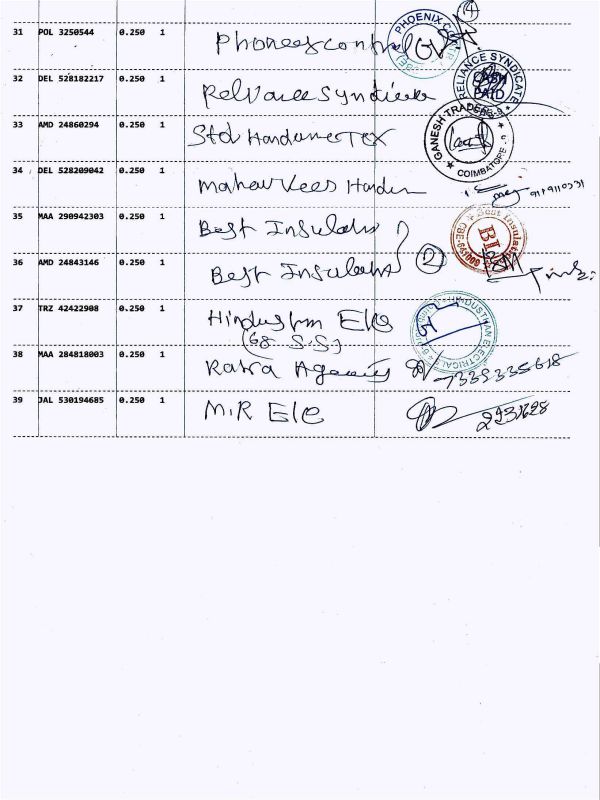 31 POL 3250544 0.250 1 Phoneex control
PHOENIX C
32 DEL 528182217 0.250 1 Relvance Syndicate
RELIANCE SYNDICATE
CASH
PAID
33 AMD 24860294 0.250 1 Std Hardware Tex
GANESH TRADERS
COIMBATORE
34 DEL 528209042 0.250 1
35 MAA 290942303 0.250 1 Best Insulators
Best Insulat
BI
36 AMD 24843146 0.250 1 Best Insulators
2
37 TRZ 42422908 0.250 1 Hindustan Ele
(68. S.S)
HINDUSTHAN ELECTRICAL
38 MAA 284818003 0.250 1 Ratra Agencies 7339335618
39 JAL 530194685 0.250 1 M.R Ele